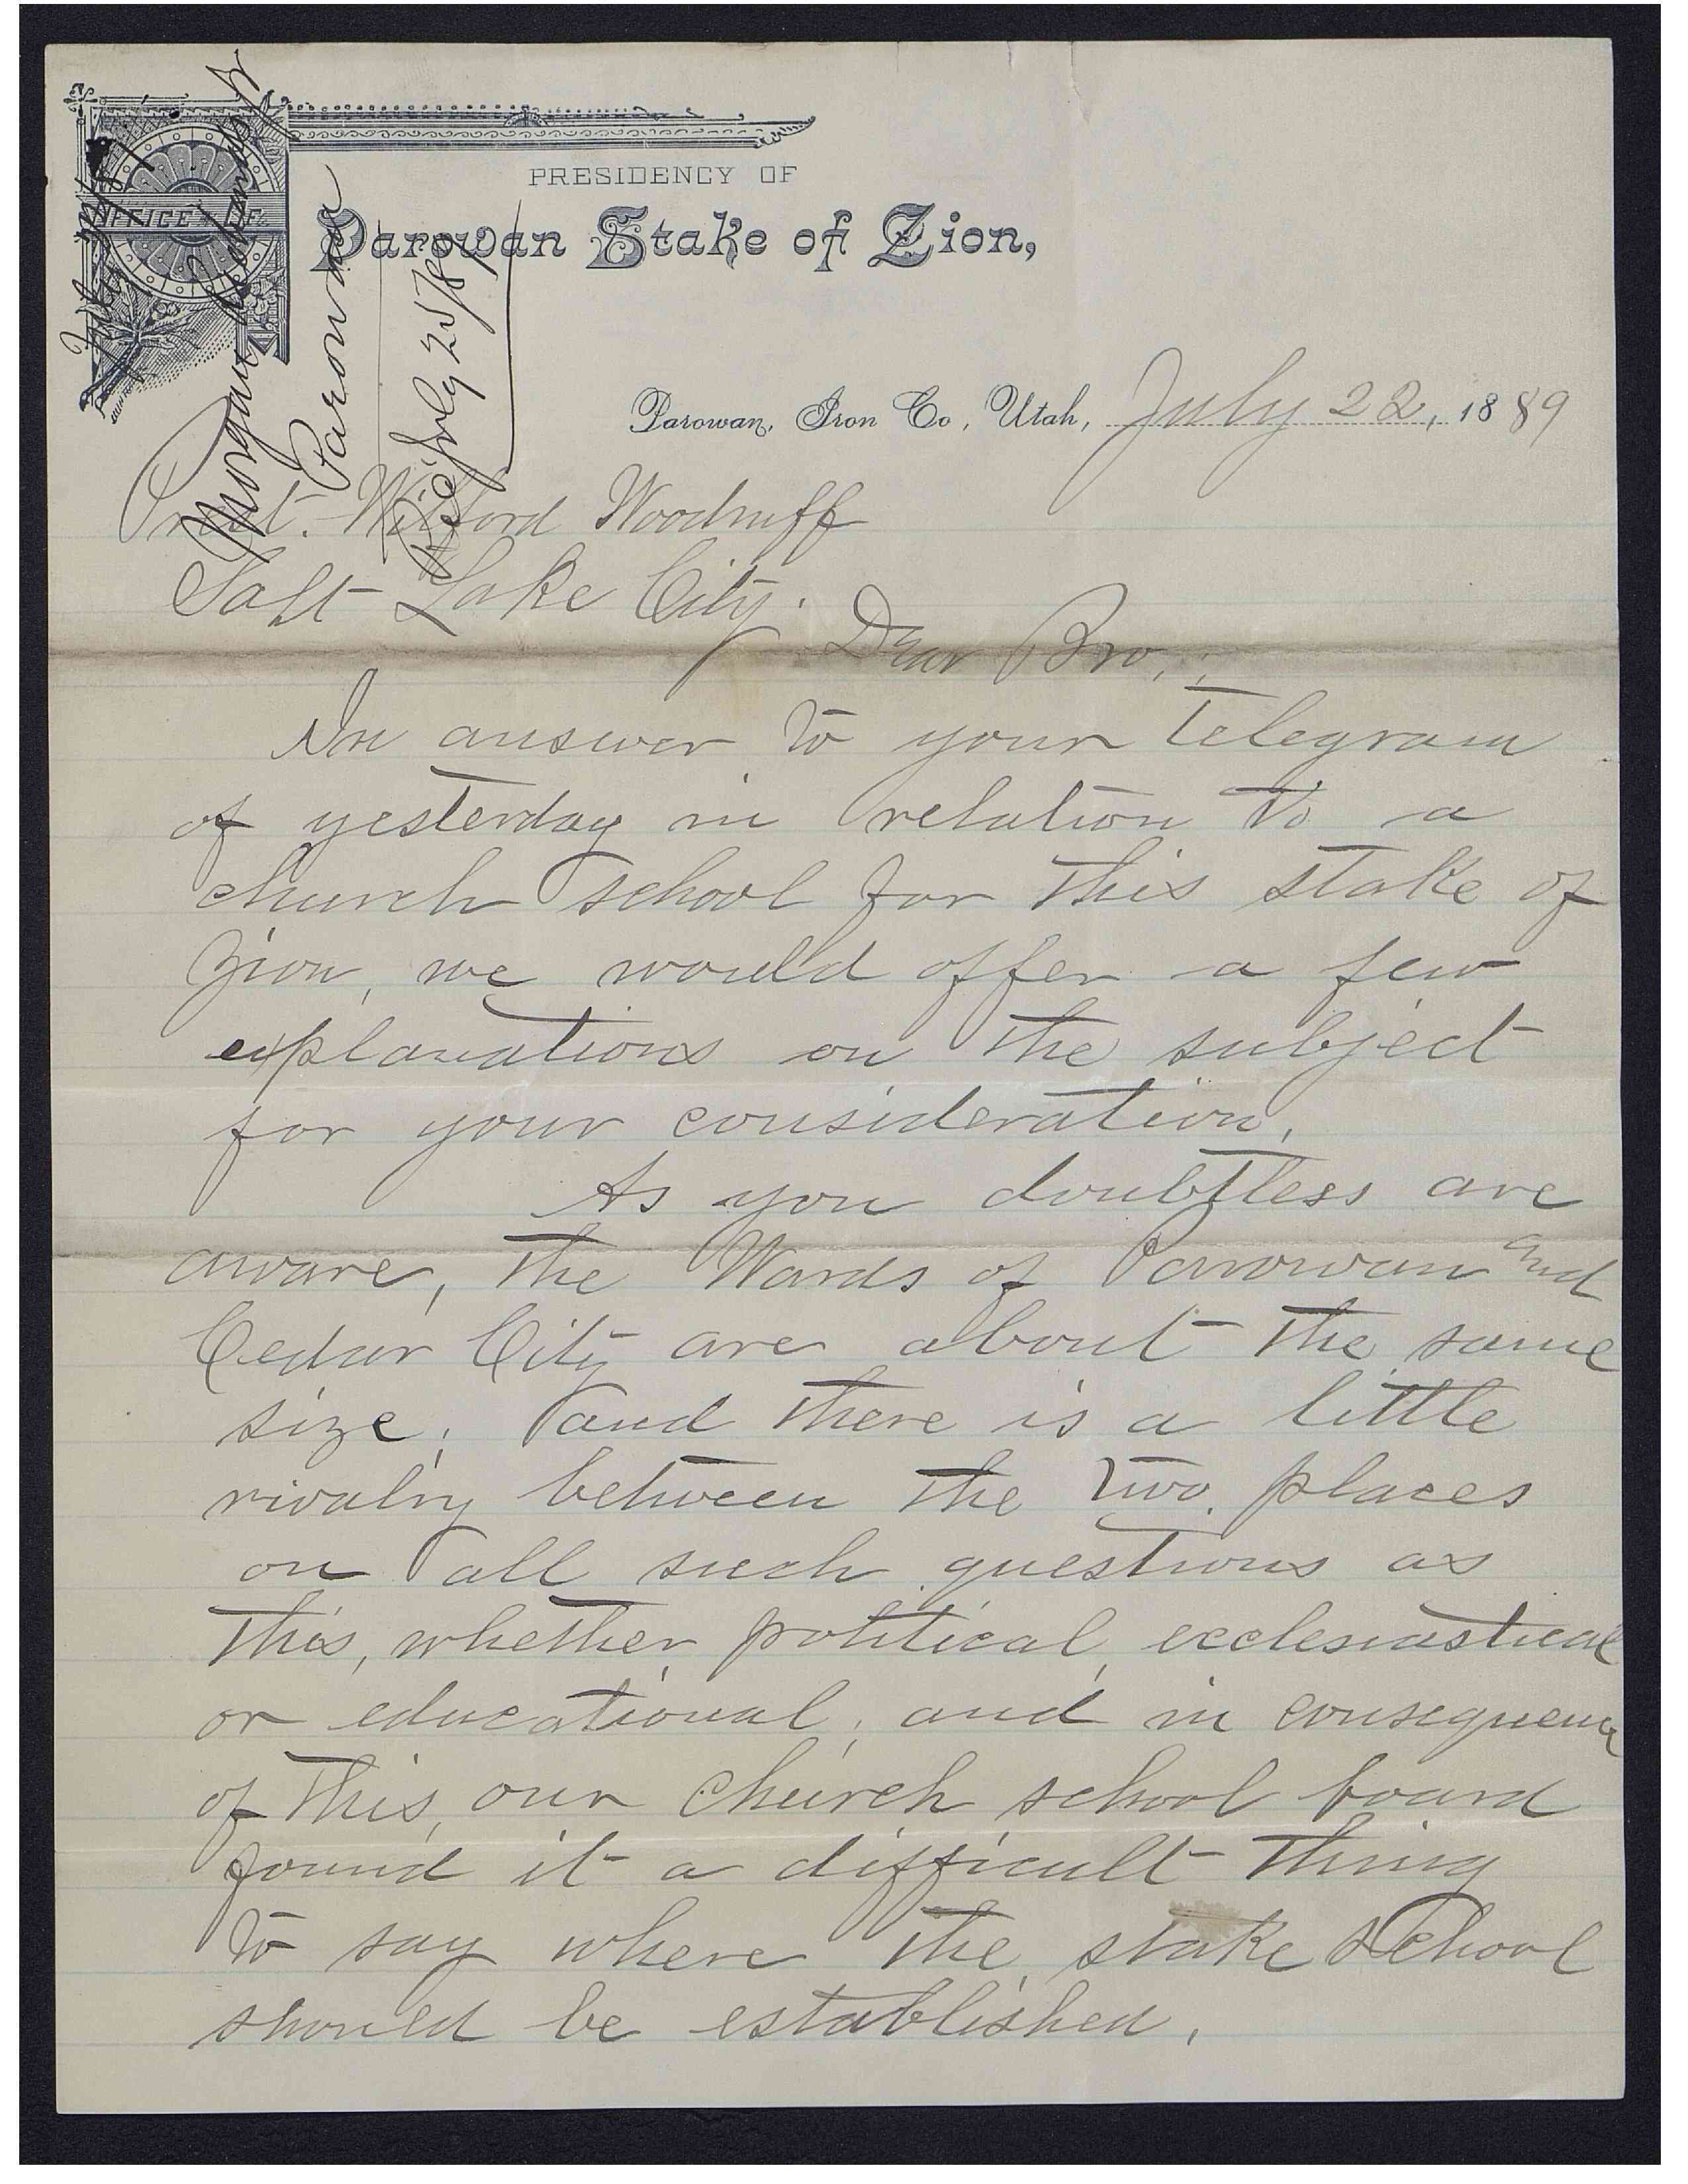 OFFICE OF
PRESIDENCY OF
Parowan Stake of Zion,
Parowan, Iron Co, Utah, July 22, 1889
July 22/89
Morgan Edwards Jr
Parowan
Rec July 25/89
Prest. Wilford Woodruff
Salt Lake City.
Dear Bro.;
In answer to your telegram
of yesterday in relation to a
church school for this stake of
Zion, we would offer a few
explanations on the subject
for your consideration.
As you doubtless are
aware, the Wards of Parowan and
Cedar City are about the same
size; and there is a little
rivalry between the two places
on all such questions as
this, whether political, ecclesiastical
or educational; and in consequence
of this, our church school board
found it a difficult thing
to say where the stake school
should be established.